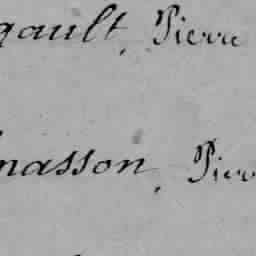 gault, Pierre
masson, Pierr